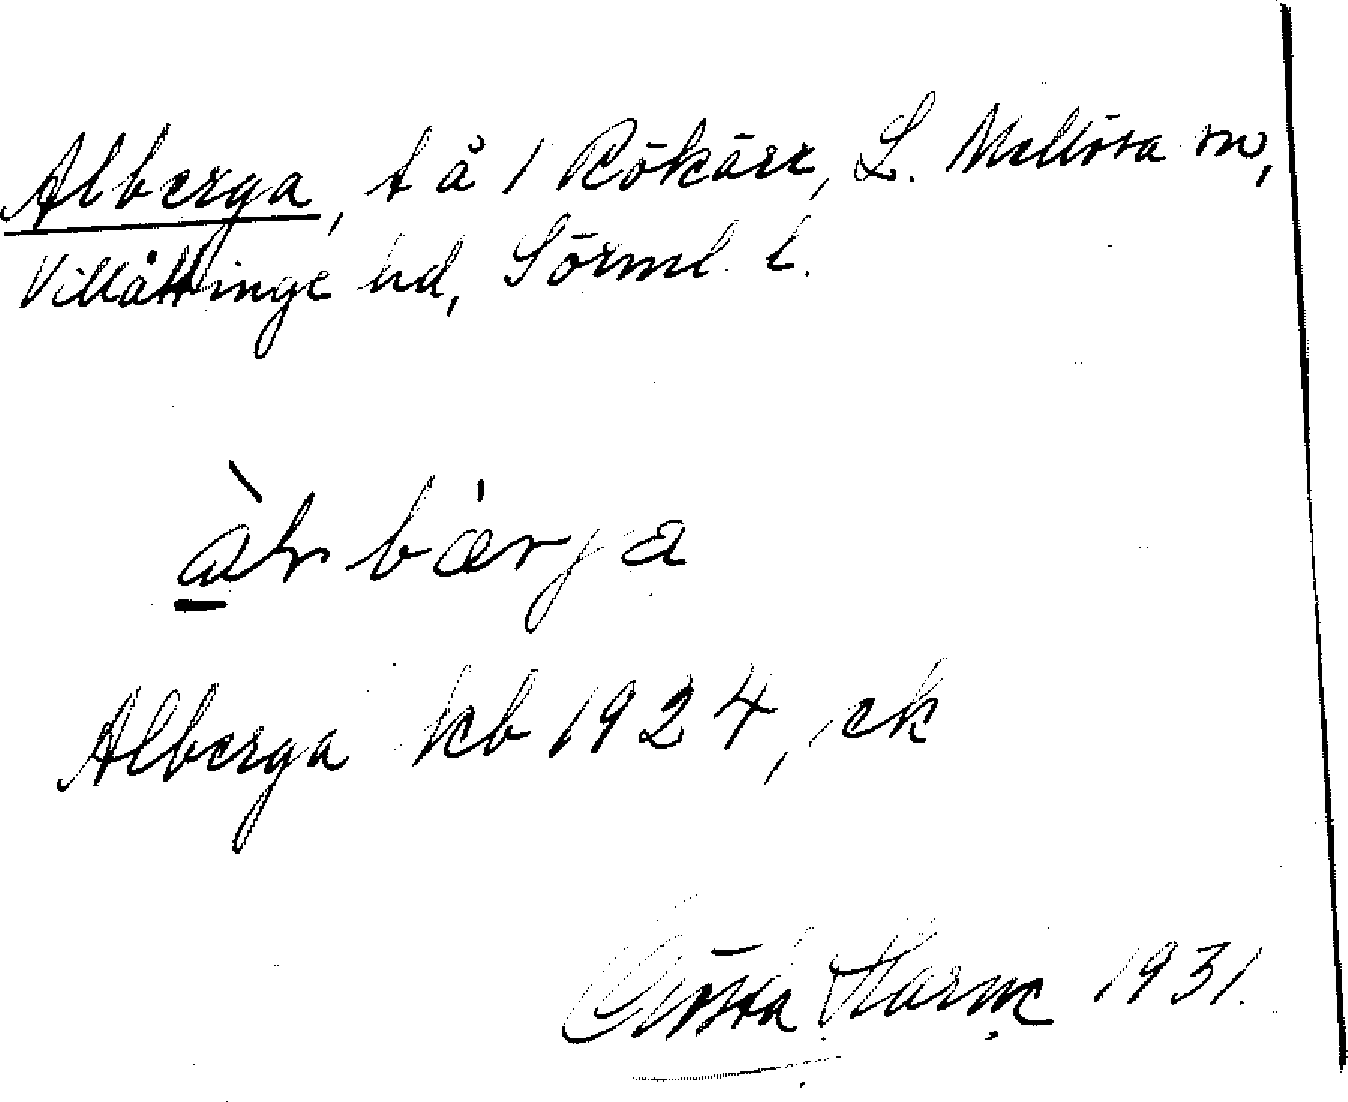 Alberga, t å 1 Rökärr, L. Mellösa sn,
Villåttinge hd, Sörml. l.
àlbærja
Alberga kb 1924, ek
Gösta Harme 1931.